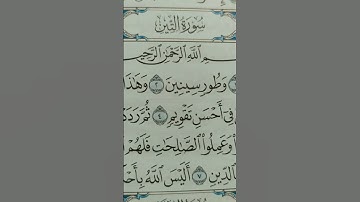 سُورَةُ التِّينِ
ـمِ ٱللَّهِ ٱلرَّحْمَٰنِ ٱلرَّحِيـ
وَطُورِ سِينِينَ ٢ وَهَٰذَا
فِىٓ أَحْسَنِ تَقْوِيمٍ ٤ ثُمَّ رَدَدْ
وَعَمِلُوا۟ ٱلصَّٰلِحَٰتِ فَلَهُمْ
بِٱلدِّينِ ٧ أَلَيْسَ ٱللَّهُ بِأَحْـ